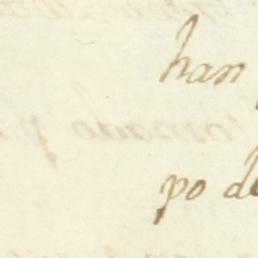 han
po de